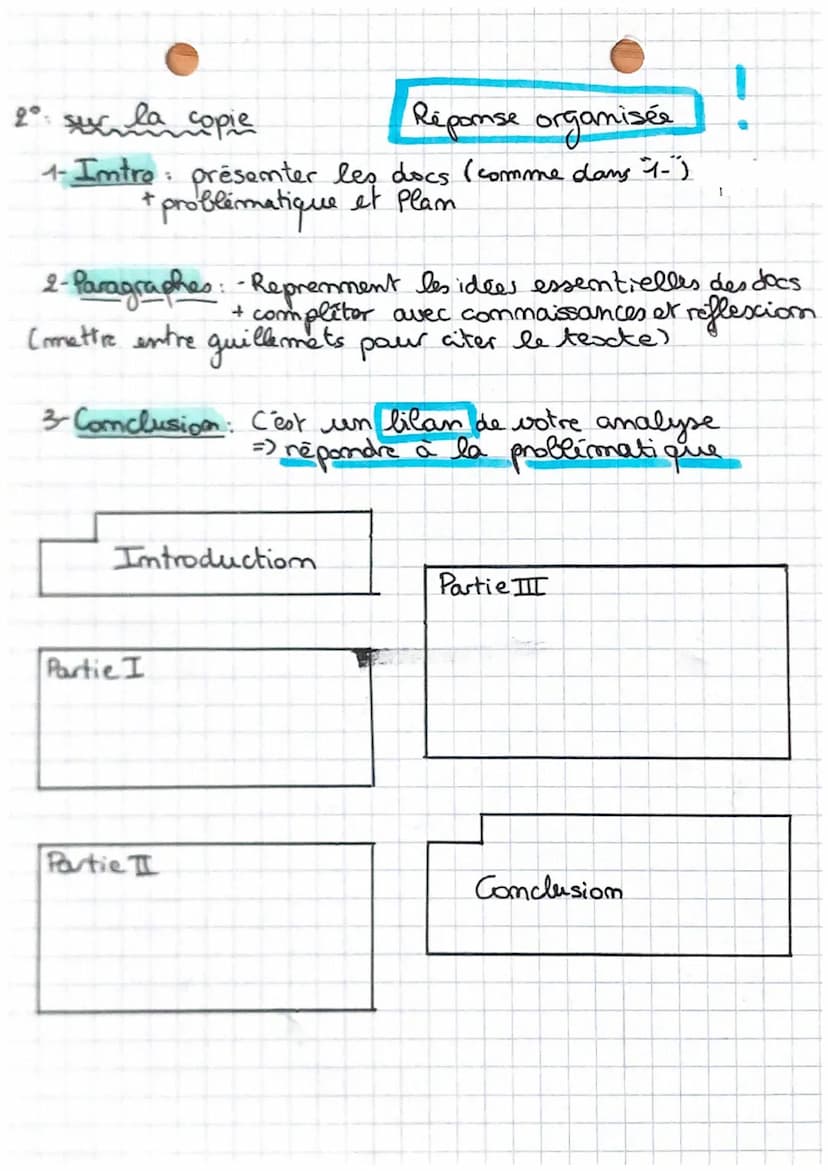 2°: sur la copie
Réponse organisée !
1- Intro : présenter les docs (comme dans "1-")
+ problématique et Plan
2- Paragraphes : - Reprennent les idées essentielles des docs
+ compléter avec connaissances et réflexion
(mettre entre guillemets pour citer le texte)
3- Conclusion : C'est un bilan de votre analyse
=> répondre à la problématique
Introduction
Partie I
Partie II
Partie III
Conclusion